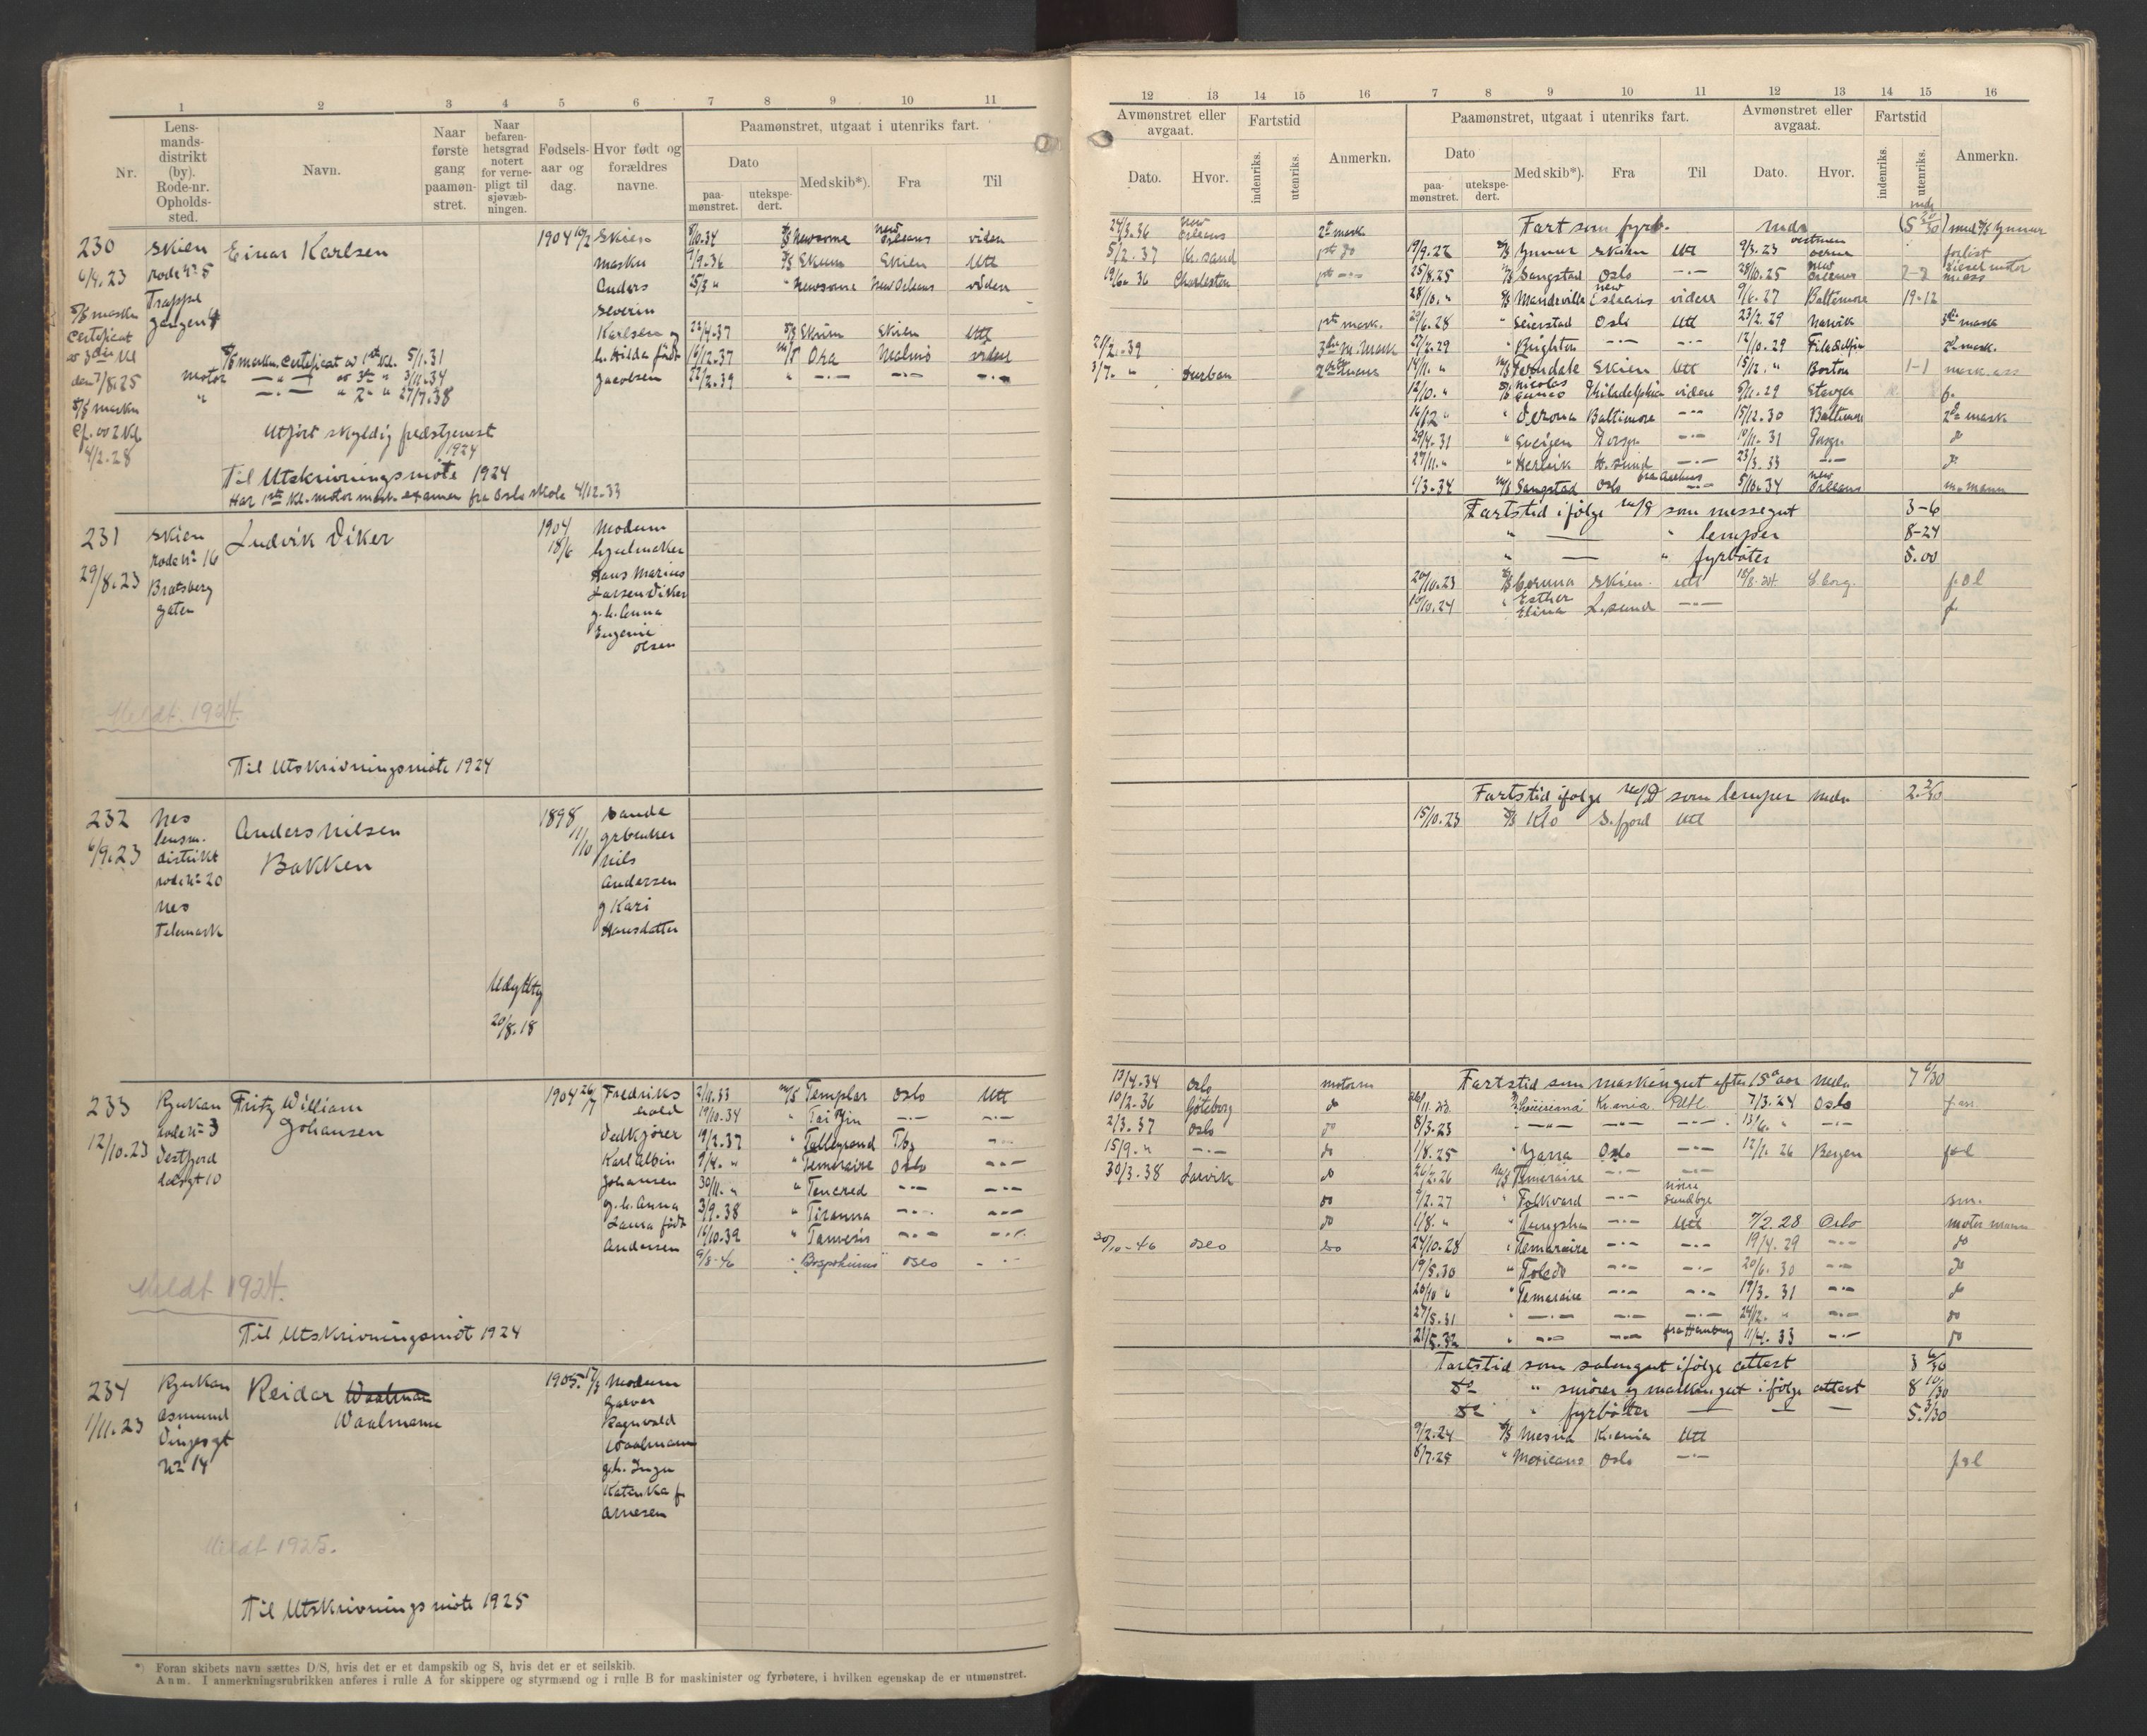 1 2 3 4 5 6 7 8 9 10 11
Nr.
Lens-
mands-
distrikt
(by).
Rode-nr.
Opholds-
sted.
Navn.
Naar
første
gang
paamøn-
stret.
Naar
befaren-
hetsgrad
notert
for verne-
pligt til
sjøvæb-
ningen.
Fødsels-
aar og
dag.
Hvor født og
forældres
navne.
Paamønstret, utgaat i utenriks fart.
Dato
paa-
mønstret.
utekspe-
dert.
Med skib*).
Fra
Til
230
6/4.23
Skien
rode No 5
Trappe
gangen 4
S/S maskn
Certificat
av 3die Kl
den 7/8.25
S/S maskn
Cf. av 2 Kl
4/2.28
Einar Karlsen
S/S maskn. Certeficat av 1ste Kl. 5/1.31
motor — " — av 3die " 3/11.34
" — . — " 2n " 27/7.38
Utført skyldig fredstjenest
1924
Til Utskrivningsmøte 1924
Har 1ste Kl. motor mask. examen fra Oslo skole 4/12.33
1904 10/2
Skien
maskn
Anders
Severin
Karlsen og
h. Hilda født
Jacobsen
8/10.34 S/S Newsome New Orleans viden
7/9.36 S/S Skrim Skien Utl
25/3 " " Newsome New Orleans viden
22/4.37 S/S Skrim Skien Utl
16/12.37 M/T Ora Malmö viden
22/2.39 " —.— —.— —.—
231
29/8.23
Skien
rode No 16
Bratsberg
gaten
Ludvik Viker
1904
18/6
Modum
hjulmaker
Hans Marius
Larsen Viker
g. h. Anna
Eugenie
Olsen
Meldt. 1924.
Til Utskrivningsmøte 1924
232
6/9.23
Nes
lensm.
distrikt
rode No 20
Nes
Telemark
Anders Nilsen
Bakken
1898
11/10
Sande
grbruker
Nils
Andersen
g Kari
Hansdatter
Udyktig
20/8.18
233
12/10.23
Rjukan
rode No 3
Vestfjord
dalsgt 10
Fritz William
Johansen
1904 26/7
Fredriks
hald
Vedkjører
Karl Albin
Johansen
g. h. Anna
Laura født
Andersen
2/11.33 M/S Templar Oslo Utl
19/10.34 " Tai Yin —.— —.—
19/2.37 " Talleyrand Tbg —.—
9/4. " " Temeraire Oslo —.—
30/11. " " Tancred —.— —.—
3/9.38 " Tiranna —.— —.—
16/10.39 " Tamesis —.— —.—
9/8-46 " Bosphorus Oslo —.—
Meldt 1924.
Til Utskrivningsmøt 1924
234
1/11.23
Rjukan
Asmund
Vinjesgt
No 14
Reidar Waalman
Waalmann
1905 17/3
Modum
Garver
Ragnvald
Waalmann
g.h. Inga
Katinka f.
Arnesen
Meldt 1925.
Til Utskrivningsmøte 1925
*) Foran skibets navn sættes D/S, hvis det er et dampskib og S, hvis det er et seilskib.
Anm. I anmerkningsrubrikken anføres i rulle A for skippere og styrmænd og i rulle B for maskinister og fyrbøtere, i hvilken egenskap de er utmønstret.
12 13 14 15 16 7 8 9 10 11 12 13 14 15 16
Avmønstret eller
avgaat.
Dato.
Hvor.
Fartstid
indenriks.
utenriks.
Anmerkn.
Paamønstret, utgaat i utenriks fart.
Dato
paa-
mønstret.
utekspe-
dert.
Med skib*).
Fra
Til
Avmønstret eller
avgaat.
Dato.
Hvor.
Fartstid
indenriks.
utenriks.
Anmerkn.
24/3.36 New Orleans 2n mask
5/2.37 Kr. sand 1ste do
19/6.36 Charleston 1ste —.—
1ste mask.
3die M. Mask
3/7. " Durban
Fart som fyrb. mdr (5 20/30) med S/S Gunnar
19/9.22 S/S Gunnar Skien Utl 9/3.23 forlist
25/8.25 M/S Sangstad Oslo —.— 28/10.25 New Orleans 2-2 diesel motor m. ass
28/10. " S/S Mandeville New Orleans videre 9/6.27 Baltimore 19-12
29/6.28 " Seierstad Oslo Utl 23/2.29 Narvik 3die mask
27/2.29 " Brighton —.— —.— 12/10.29 Filadelfia 2n mask.
14/11. " M/S Ferndale Skien Utl 15/12. " Boston 1-1 mask. ass
12/10. " S/S Nicolas Cuneo Philadelphia videre 5/11.29 f.
16/12 " " Verona Baltimore —.— 15/12.30 Baltimore 2n mask
29/4.31 " —.— 10/11.31 do
27/11. " H. sund —.— 23/3.33 —.— do
1/3.34 M/S Sangstad Oslo fra Aarhus 5/10.34 New Orleans m. mann
Fartstid ifølge m/r som messegut 3-6
" — " lemper 8-24
" — " fyrbøter 5.00
20/10.23 S/S Corona Skien. Utl 18/8.24. S. borg. f & l
10/10.24 " Esther Elina L. sund —.— f.
Fartstid ifølge m/r som lemper mdr 2.2/30
15/10.23 S/S Klo S. fjord Utl
13/4.34 Oslo motorm
10/2.36 Göteborg do
2/3.37 Oslo do
15/9. " —.— do
30/3.38 Larvik do
do
do
30/10-46 Oslo do
Fartstid som maskingut efter 15 aar mdr 7 6/30
Kr.ania Utl. 7/3.24 Oslo
8/3.23 —"— —"— —.— 13/6. " —.—
1/8.25 " Yarra Oslo —.— 12/2.26 Bergen f&l
26/2.26 M/S Temeraire —.— —.—
9/2.27 " Folkvard —.— nörre Sundbye sm.
1/8. " " Tungsha —.— Utl 7/2.28 Oslo motor mann
24/10.28 " Temeraire —.— —.— 19/4.29 —.— do
19/5.30 " Toledo —.— —.— 20/6.30 —.— do
20/10 " " Temeraire —.— —.— 19/3.31 —.— do
27/5.31 " —.— —.— —.— 24/12. " —.— do
21/5.32 " —.— —.— fra Hamburg 11/4.33 —.— do
Fartstid som salongut ifølge attest 3 6/30
Do " smører og maskingut ifølge attest 8 10/30
Do " fyrbøter — — — 5.3/30
9/2.24 S/S Mesna Kr.ania Utl
8/7.25 " Mexicano Oslo —.— f&l